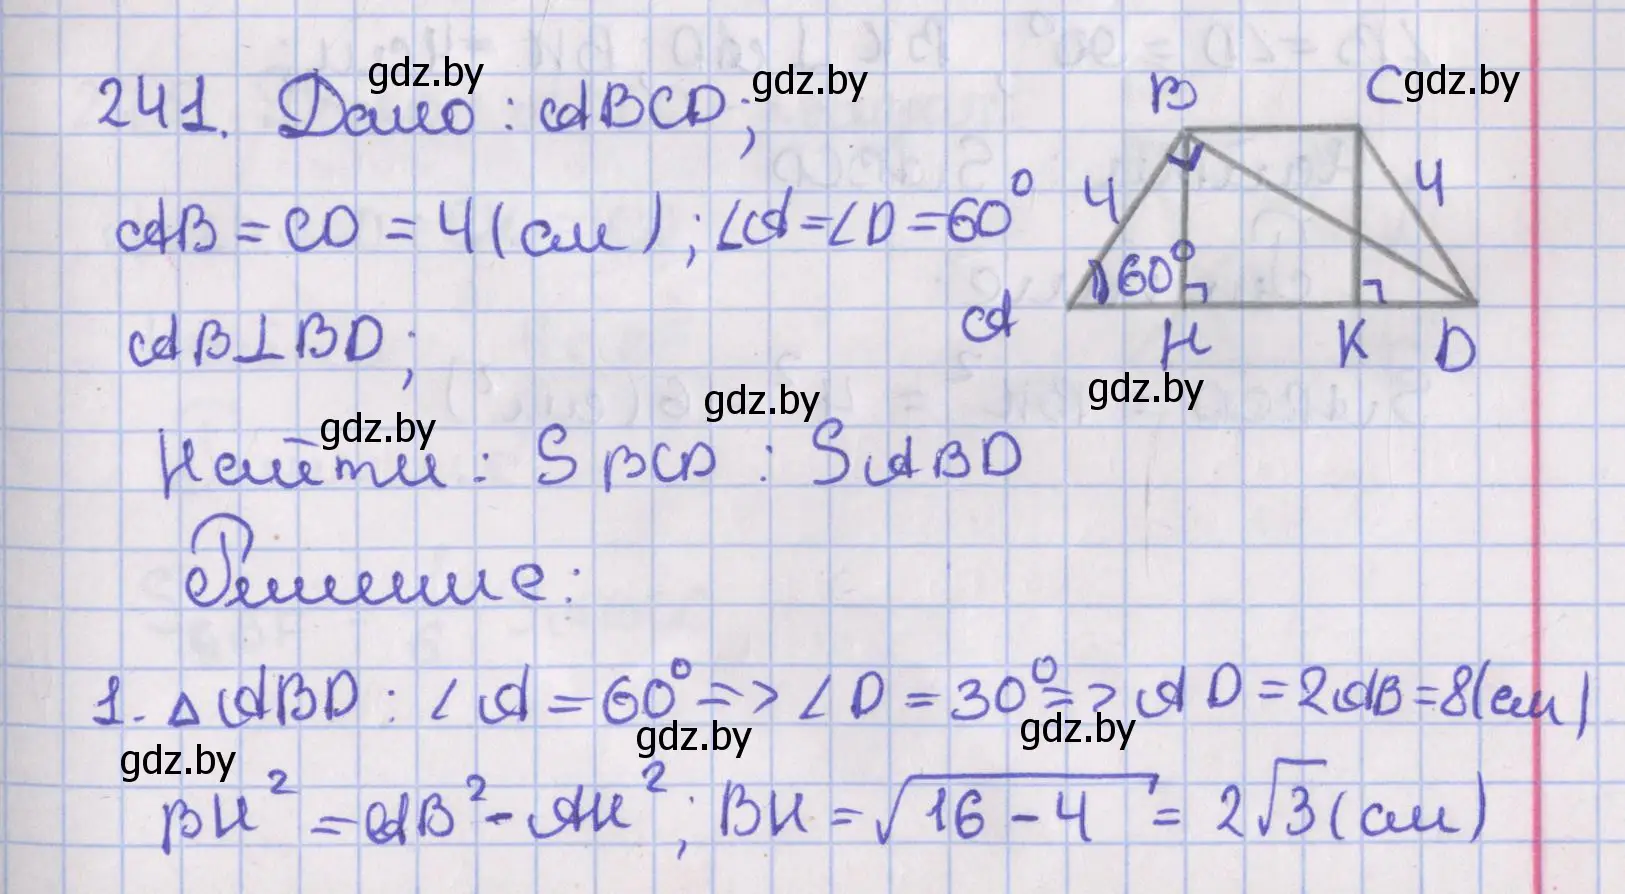 241. Дано: ABCD;
AB = CD = 4 (см); ∠A = ∠D = 60°
AB⊥BD;
Найти: S BCD : S ABD
Решение:
1. △ABD: ∠A = 60° => ∠D = 30° => AD = 2AB = 8 (см)
BH² = AB² - AH²; BH = √16 - 4 = 2√3 (см)
B C
4 4
60°
A H K D
gdz.by gdz.by gdz.by
gdz.by gdz.by gdz.by
gdz.by gdz.by gdz.by